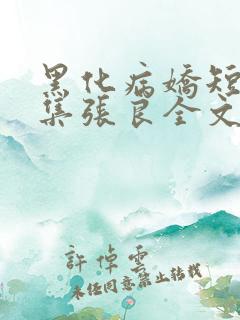 黑化病嬌短
集張良全文
許倬雲
未经同意禁止转载